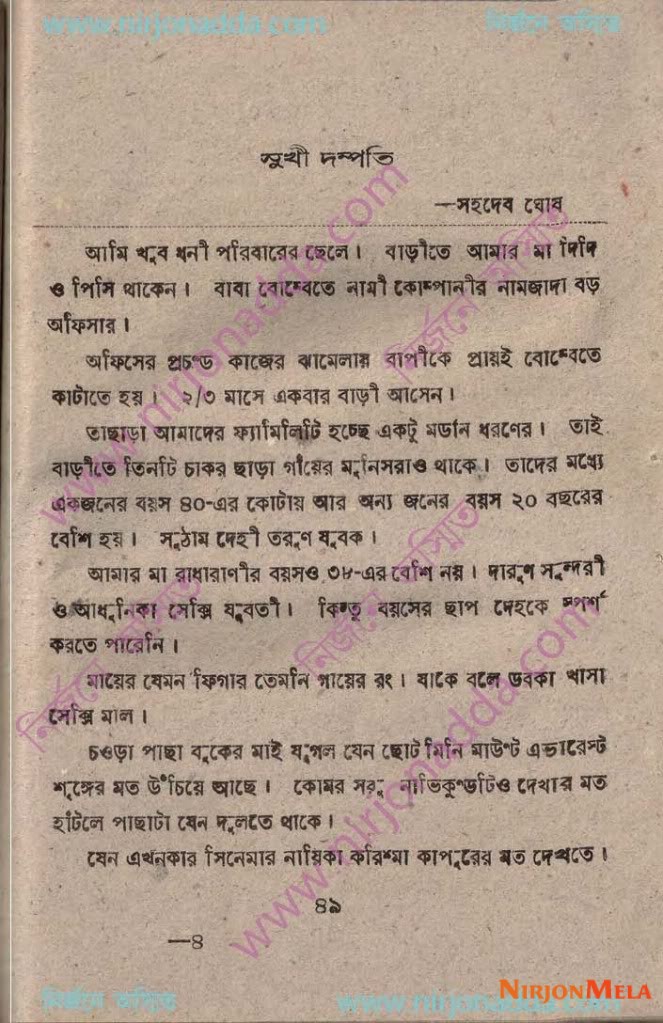 www.nirjonadda.com নির্জনে আড্ডা
সুখী দম্পতি
—সহদেব ঘোষ
আমি খুব ধনী পরিবারের ছেলে। বাড়ীতে আমার মা দিদি
ও পিসি থাকেন। বাবা বোম্বেতে নামী কোম্পানীর নামজাদা বড়
অফিসার।
অফিসের প্রচণ্ড কাজের ঝামেলায় বাপীকে প্রায়ই বোম্বেতে
কাটাতে হয়। ২/৩ মাসে একবার বাড়ী আসেন।
তাছাড়া আমাদের ফ্যামিলিটি হচ্ছে একটু মর্ডান ধরণের। তাই
বাড়ীতে তিনটি চাকর ছাড়া গাঁয়ের মুনিসরাও থাকে। তাদের মধ্যে
একজনের বয়স ৪০-এর কোটায় আর অন্য জনের বয়স ২০ বছরের
বেশি হয়। সুঠাম দেহী তরুণ যুবক।
আমার মা রাধারাণীর বয়সও ৩৮-এর বেশি নয়। দারুণ সুন্দরী
ও আধুনিকা সেক্সি যুবতী। কিন্তু বয়সের ছাপ দেহকে স্পর্শ
করতে পারেনি।
মায়ের যেমন ফিগার তেমনি গায়ের রং। যাকে বলে ডবকা খাসা
সেক্সি মাল।
চওড়া পাছা বুকের মাই যুগল যেন ছোট মিনি মাউন্ট এভারেস্ট
শৃঙ্গের মত উঁচিয়ে আছে। কোমর সরু নাভিকুণ্ডটিও দেখার মত
হাঁটলে পাছাটা যেন দুলতে থাকে।
যেন এখনকার সিনেমার নায়িকা করিশ্মা কাপুরের মত দেখতে।
৪৯
—৪
www.nirjonadda.com
NIRJONMELA
নির্জনে আড্ডা www.nirjonadda.com